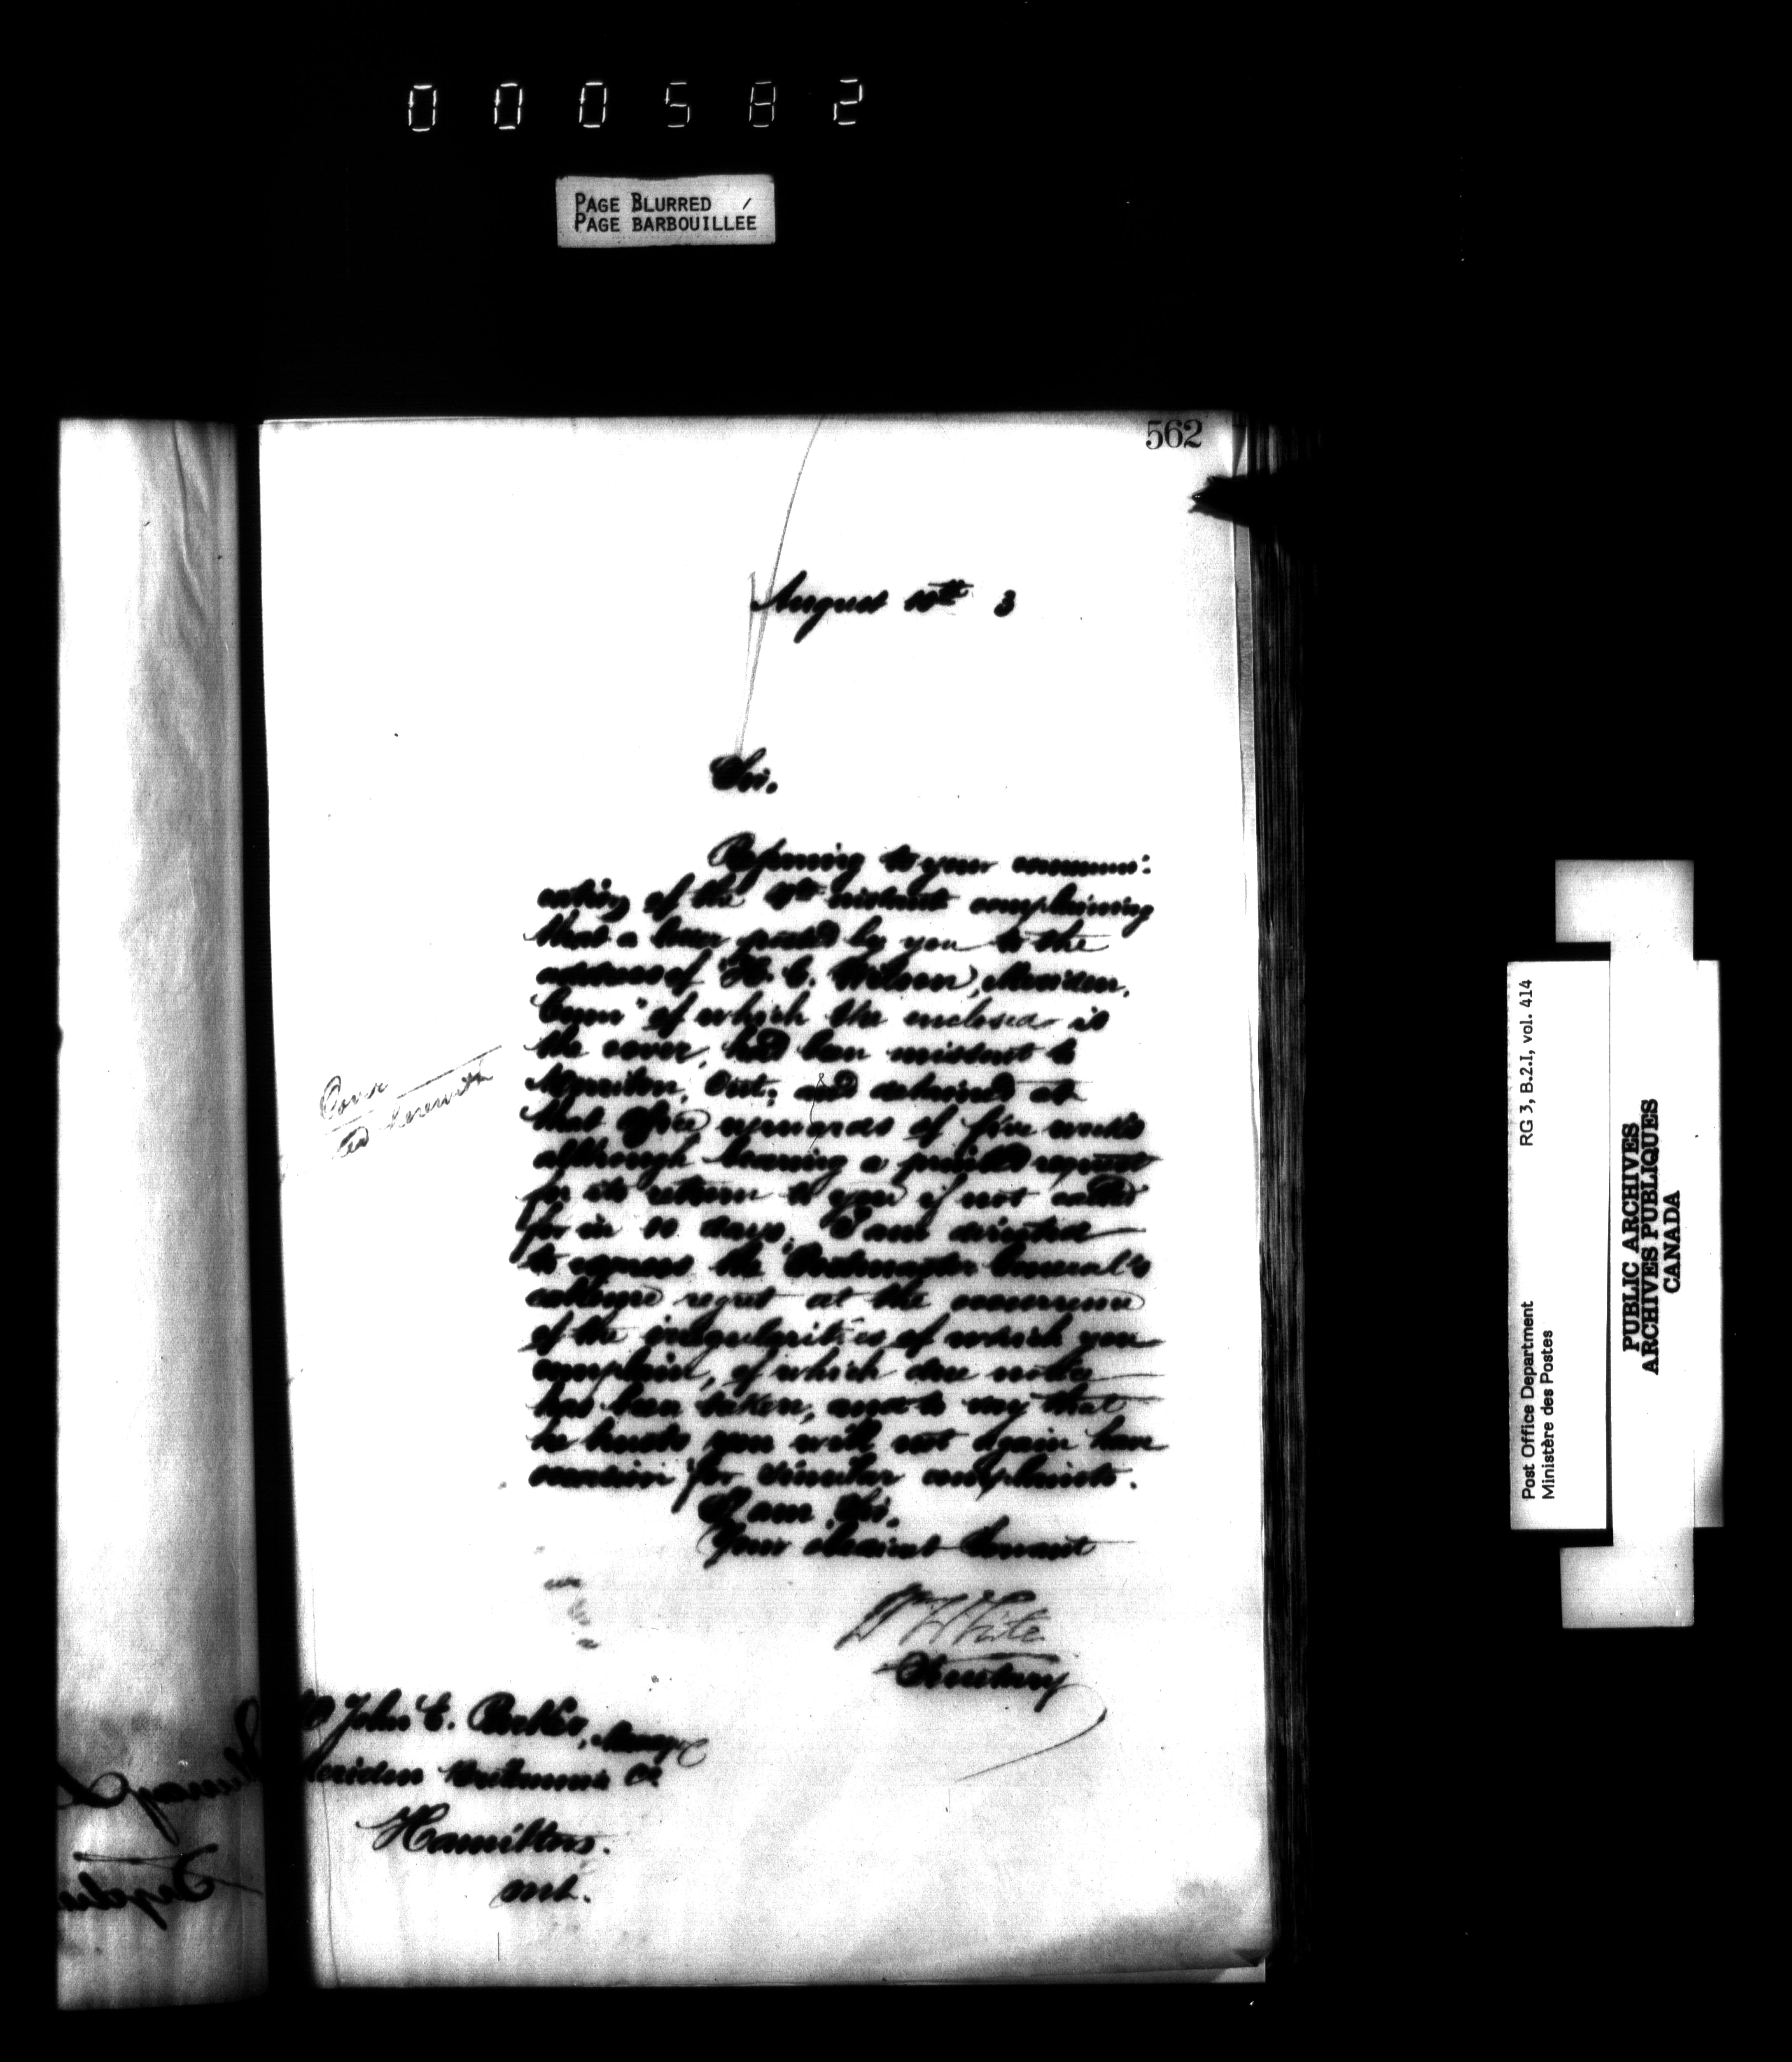 000582
PAGE BLURRED
PAGE BARBOUILLEE
562
August 10th 3
Sir.
Referring to your communi:
cation of the 4th instant complaining
that a letter posted by you to the
address of "H. C. Wilson, Meriden,
Conn" of which the enclosed is
the cover, had been missent to
Cover
herewith
Ont; and retained at
that office upwards of five weeks
although bearing a printed request
for its return to you if not called
for in 10 days, I am directed
to express the Postmaster General's
regret at the occurrence
of the irregularities of which you
complain, of which due notice
has been taken, and to say that
he trusts you will not again have
occasion for similar complaints.
I am, Sir.
Your obedient Servant
Wm White
Secretary
John E. Parker, Manager
Meriden Britannia Co
Hamilton.
Ont.
RG 3, B.2.I, vol. 414
Post Office Department
Ministère des Postes
PUBLIC ARCHIVES
ARCHIVES PUBLIQUES
CANADA